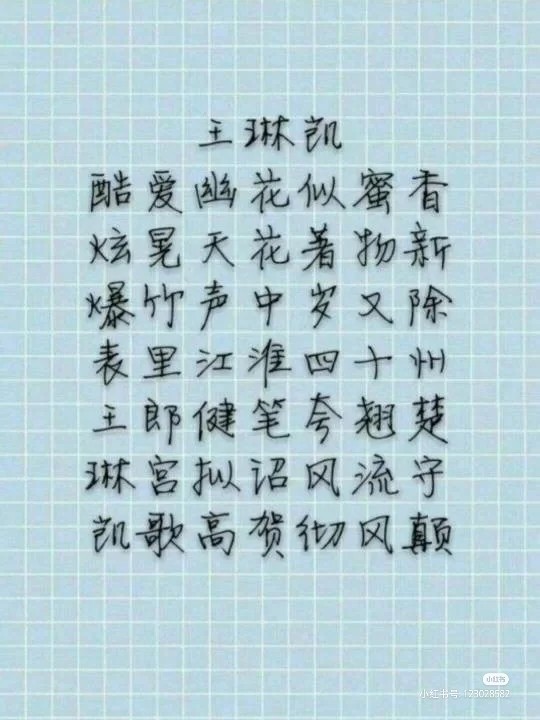 王琳凯
酷爱幽花似蜜香
炫晃天花著物新
爆竹声中岁又除
表里江淮四十州
王郎健笔夸翘楚
琳宫拟诏风流守
凯歌高贺彻风颠
小红书
小红书号:123028582